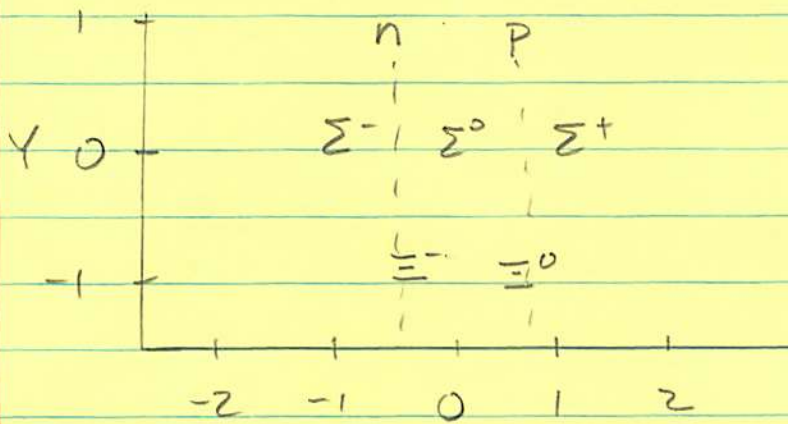 1 n p
Y 0 Σ⁻ Σ⁰ Σ⁺
-1 Ξ⁻ Ξ⁰
-2 -1 0 1 2